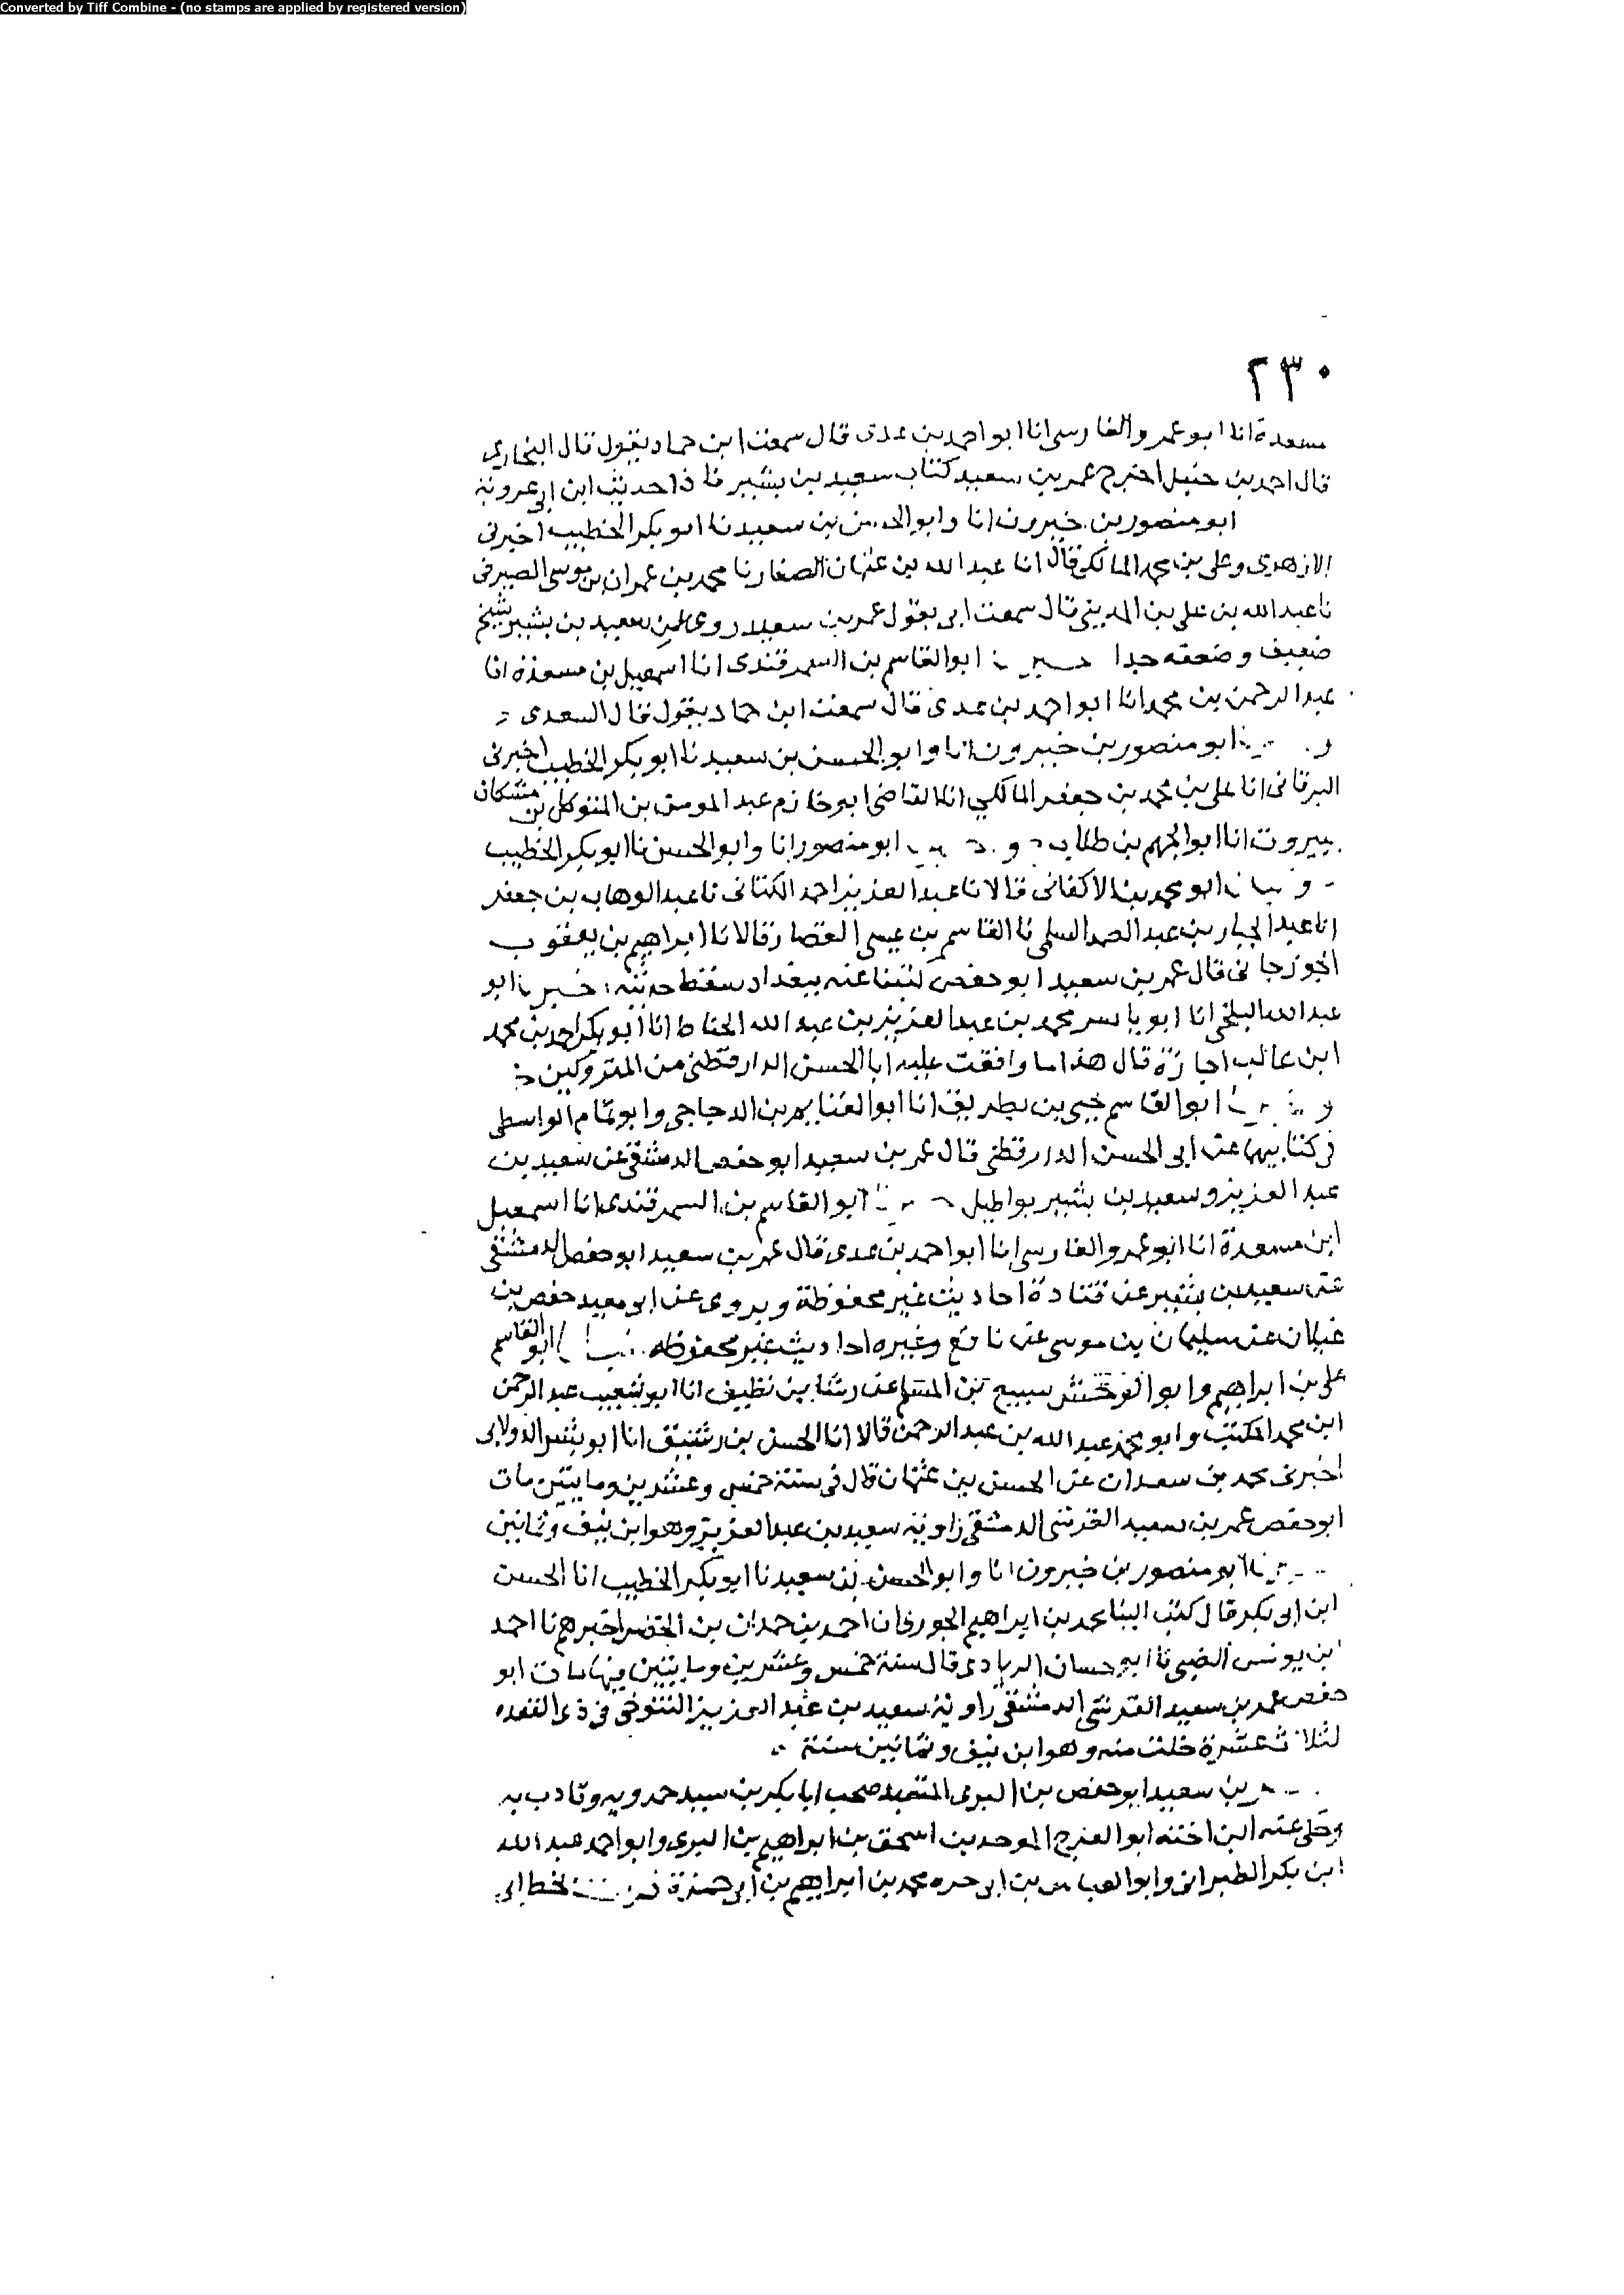 Converted by Tiff Combine - (no stamps are applied by registered version)
٢٣٠
مسعدة انا ابو عمرو الفارسى انا ابو احمد بن عدى قال سمعت ابن حماد يقول قال البخارى
قال احمد بن حنبل اخرج عمر بن سعيد كتاب سعيد بن بشير فاذا حديث ابن ابى عروبة
ابو منصور بن خيرون انا وابو الحسن بن سعيد نا ابو بكر الخطيب اخبرنى
الازهرى وعلى بن محمد المالكى قالا انا عبد الله بن عثمان الصفار نا محمد بن عمران بن موسى الصيرفى
نا عبد الله بن على بن المدينى قال سمعت ابى يقول عمر بن سعيد روى عن سعيد بن بشير شيخ
ضعيف وضعفه جدا ابو القاسم بن السمرقندى انا اسمعيل بن مسعدة انا
عبد الرحمن بن محمد انا ابو احمد بن عدى قال سمعت ابن حماد يقول قال السعدى
ابو منصور بن خيرون انا وابو الحسن بن سعيد نا ابو بكر الخطيب اخبرنى
البرقانى انا على بن محمد بن جعفر المالكى انا القاضى ابو خازم عبد المومن بن المتوكل بن مشكان
ببيروت انا ابو الجهم بن طلاب ابو منصور انا وابو الحسن نا ابو بكر الخطيب
ابو محمد بن الاكفانى قالا نا عبد العزيز احمد الكتانى نا عبد الوهاب بن جعفر
انا عبد الجبار بن عبد الصمد السلمى نا القاسم بن عيسى العصار قالا نا ابراهيم بن يعقوب
الجوزجانى قال عمر بن سعيد ابو حفص كتبنا عنه ببغداد سقط حديثه ابو
عبد الله البلخى انا ابو ياسر محمد بن عبد العزيز بن عبد الله الخياط انا ابو بكر احمد بن محمد
ابن غالب اجازة قال هذا ما وافقت عليه ابا الحسن الدارقطنى من المتروكين
ابو القاسم يحيى بن بطريق انا ابو الغنايم بن الدجاجى وابو تمام الواسطى
فى كتابيهما عن ابى الحسن الدارقطنى قال عمر بن سعيد ابو حفص الدمشقى عن سعيد بن
عبد العزيز و سعيد بن بشير بواطيل ابو القاسم بن السمرقندى انا اسمعيل
ابن مسعدة انا ابو عمرو الفارسى انا ابو احمد بن عدى قال عمر بن سعيد ابو حفص الدمشقى
عن سعيد بن بشير عن قتادة احاديث غير محفوظة ويروى عن ابى معيد حفص بن
غيلان عن سليمان بن موسى عن نافع وغيره احاديث غير محفوظه ابو القاسم
على بن ابراهيم وابو الوحش سبيع بن المسلم عن رشا بن نظيف انا ابو شعيب عبد الرحمن
ابن محمد المكتب وابو محمد عبد الله بن عبد الرحمن قالا انا الحسن بن رشيق انا ابو بشر الدولابى
اخبرنى محمد بن سعدان عن الحسن بن عثمان قال فى سنة خمس وعشرين ومايتين مات
ابو حفص عمر بن سعيد القرشى الدمشقى راوية سعيد بن عبد العزيز وهو ابن نيف وثمانين
ابو منصور بن خيرون انا وابو الحسن بن سعيد نا ابو بكر الخطيب انا الحسن
ابن ابى بكر قال كتب الينا محمد بن ابراهيم الجورى ان احمد بن حمدان بن الخضر اخبرهم نا احمد
ابن يونس الضبى نا ابو حسان الزيادى قال سنة خمس وعشرين ومايتين فيها مات ابو
حفص عمر بن سعيد القرشى الدمشقى راوية سعيد بن عبد العزيز التنوخى فى ذى القعده
لثلاث عشرة خلت منه وهو ابن نيف وثمانين سنة
بن سعيد ابو حفص بن البرى المتعبد صحب ابا بكر بن سيد حمدويه وتادب به
وحكى عنه ابن اخته ابو الفرج الموحد بن اسحق بن ابراهيم بن البرى وابو احمد عبد الله
ابن بكر الطبرانى وابو العباس بن محمد بن ابراهيم بن ابى بخط ابى